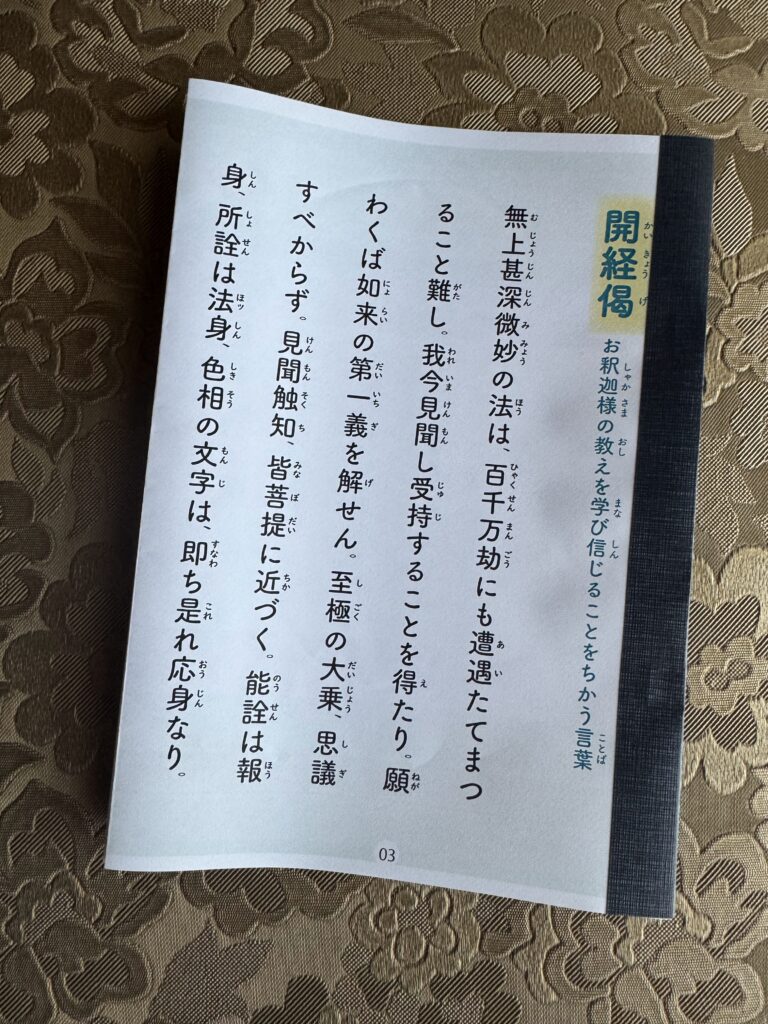 開経偈
お釈迦様の教えを学び信じることをちかう言葉
無上甚深微妙の法は、百千万劫にも遭遇たてまつ
ること難し。我今見聞し受持することを得たり。願
わくば如来の第一義を解せん。至極の大乗、思議
すべからず。見聞触知、皆菩提に近づく。能詮は報
身、所詮は法身、色相の文字は、即ち是れ応身なり。
03